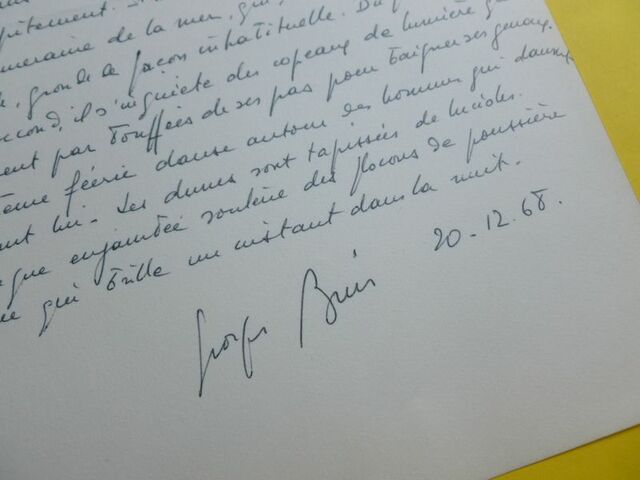 pitement.
de la mer, qui
, gronde de façon inhabituelle. Du
il s'inquiète des copeaux de lumière
par bouffées de ses pas pour baigner ses genoux.
féerie danse autour des hommes qui
lui. Les dunes sont tapissées de lucioles.
que enjambée soulève des flocons de poussière
qui brille un instant dans la nuit.
20-12-68.
Georges Buis